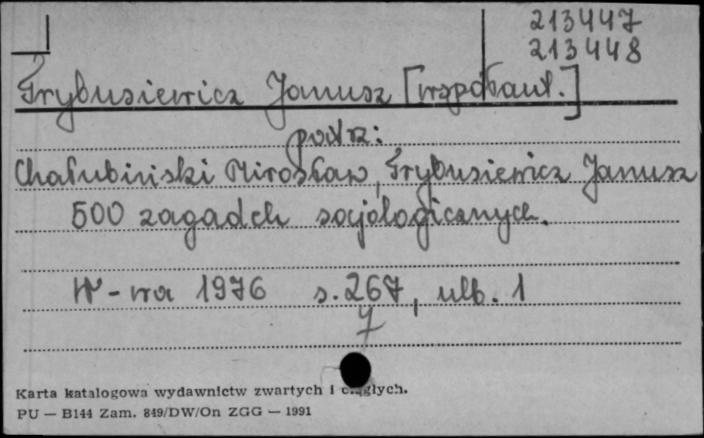 213447
213448
Trybusiewicz Janusz [współaut.]
patrz:
Chałubiński Mirosław, Trybusiewicz Janusz
500 zagadek socjologicznych.
W-wa 1976 s. 267, ulb. 1
7
Karta katalogowa wydawnictw zwartych i ciągłych.
PU — B144 Zam. 849/DW/On ZGG — 1991